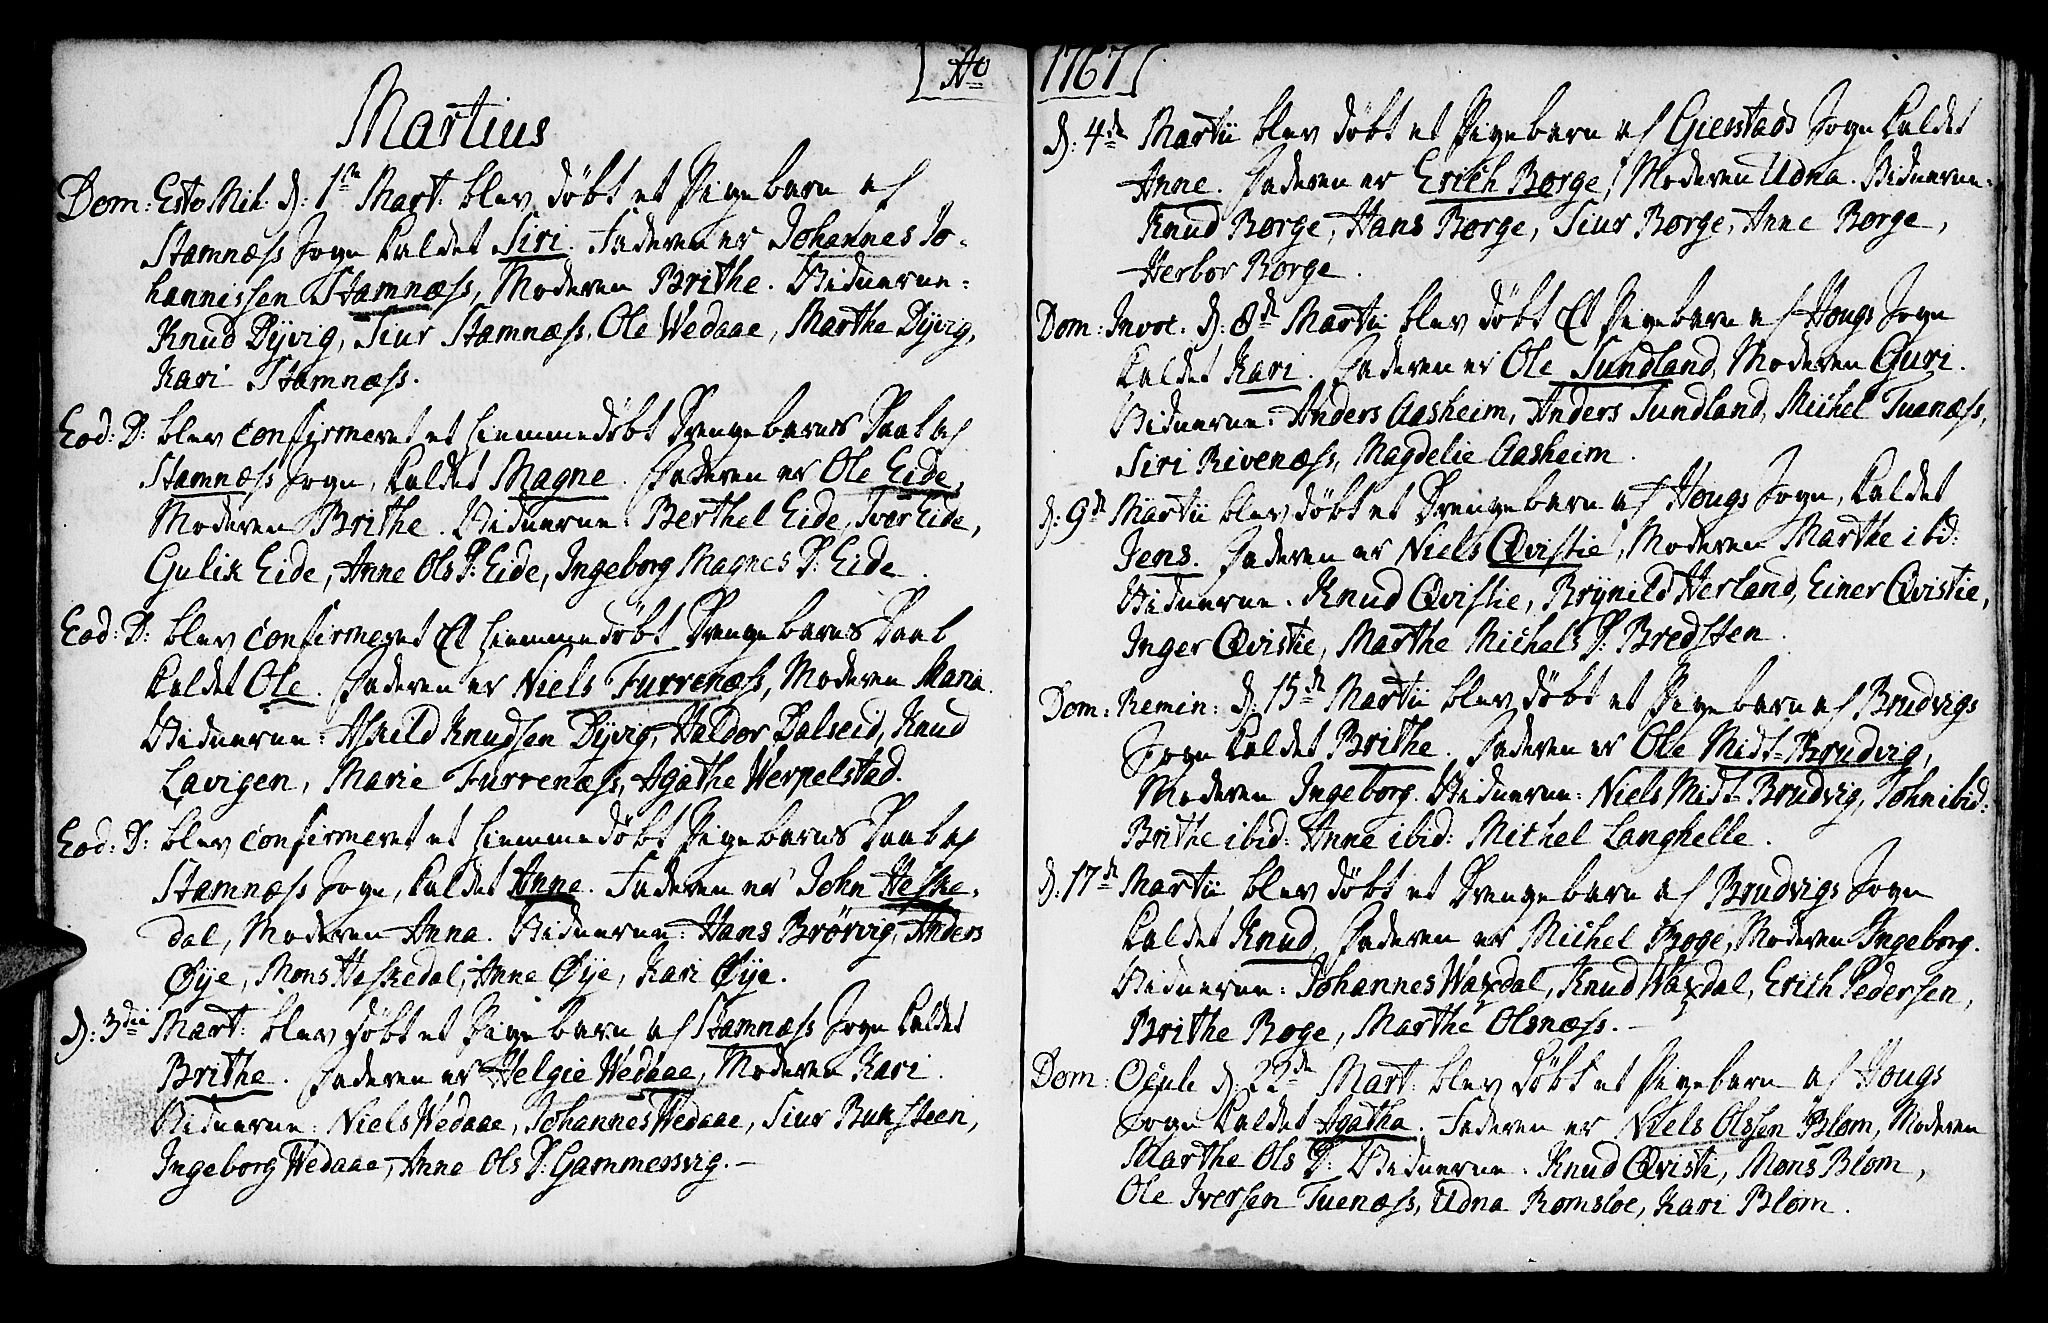 [Ao 1767]
Martius
Dom: Esto Mih. d: 1ste Mart. blev døbt et Pigebarn af
Stamnæss Sogn kaldet Siri. Faderen er Johannes Jo-
hannissen Stamnæss, Moderen Brithe. Vidnerne:
Knud Dyvig, Siur Stamnæss, Ole Wedaae, Marthe Dyvig,
Kari Stamnæss.
Eod: D: blev confirmeret et hiemmedøbt Drengebarns Daab af
Stamnæss Sogn, kaldet Magne. Faderen er Ole Eide,
Moderen Brithe. Vidnerne: Berthel Eide, Iver Eide,
Gulik Eide, Anne Ols D: Eide, Ingeborg Magnes D: Eide.
Eod: D: blev confirmeret Et hiemmedøbt Drengebarns Daab
kaldet Ole. Faderen er Niels Furrenæss, Moderen Maria.
Vidnerne: Askild Knudsen Dyvig, Haldor Dalseid, Knud
Lavigen, Marie Furrenæss, Agathe Werpelstad.
Eod: D: blev confirmeret et hiemmedøbt Pigebarns Daab af
Stamnæss Sogn, kaldet Anne. Faderen er John Heske-
dal, Moderen Anna. Vidnerne: Hans Brørvig, Anders
Øye, Mons Heskedal, Anne Øye, Kari Øye.
d: 3die Mart: blev døbt et Pigebarn af Stamnæss Sogn kaldet
Brithe. Faderen er Helgie Wedaae, Moderen Kari.
Vidnerne: Niels Wedaae, Johannes Wedaae, Siur Buksteen,
Ingeborg Wedaae, Anne Ols D: Gammersvig.-
d: 4de Martii blev døbt et Pigebarn af Gierstads Sogn kaldet
Anne. Faderen er Erich Borge, Moderen Udna. Vidnerne.
Knud Borge, Hans Borge, Siur Borge, Anne Borge,
Herbor Borge.
Dom: Invoc. d: 8de Martii blev døbt Et Pigebarn af Hougs Sogn
kaldet Kari. Faderen er Ole Sundland, Moderen Guri.
Vidnerne: Anders Aasheim, Anders Sundland, Michel Tuanæss,
Siri Rivenæss, Magdelie Aasheim.
d: 9de Martii blev døbt et Drengebarn af Hougs Sogn, kaldet
Jens. Faderen er Niels Qvistie, Moderen Marthe ibid:
Vidnerne. Knud Qvistie, Brynild Herland, Einer Qvistie,
Inger Qvistie, Marthe Michels D: Bredsten.
Dom: Remin: d: 15de Martii blev døbt et Pigebarn af Brudvigs
Sogn kaldet Brithe. Faderen er Ole Midt-Brudvig,
Moderen Ingeborg. Vidnerne: Niels Midt-Brudvig, John ibid:
Brithe ibid: Anne ibid: Michel Langhelle.
d: 17de Martii blev døbt et Drengebarn af Brudvigs Sogn
kaldet Knud, Faderen er Michel Boge, Moderen Ingeborg.
Vidnerne: Johannes Waxdal, Knud Waxdal, Erich Pedersen,
Brithe Boge, Marthe Olsnæss.-
Dom: Oculi d: 22de Mart: blev døbt et Pigebarn af Hougs
Sogn kaldet Agatha. Faderen er Niels Olssen Blom, Moderen
Marthe Ols D: Vidnerne. Knud Qvisti, Mons Blom,
Ole Iversen Tuenæss, Udna Romsloe, Kari Blom.